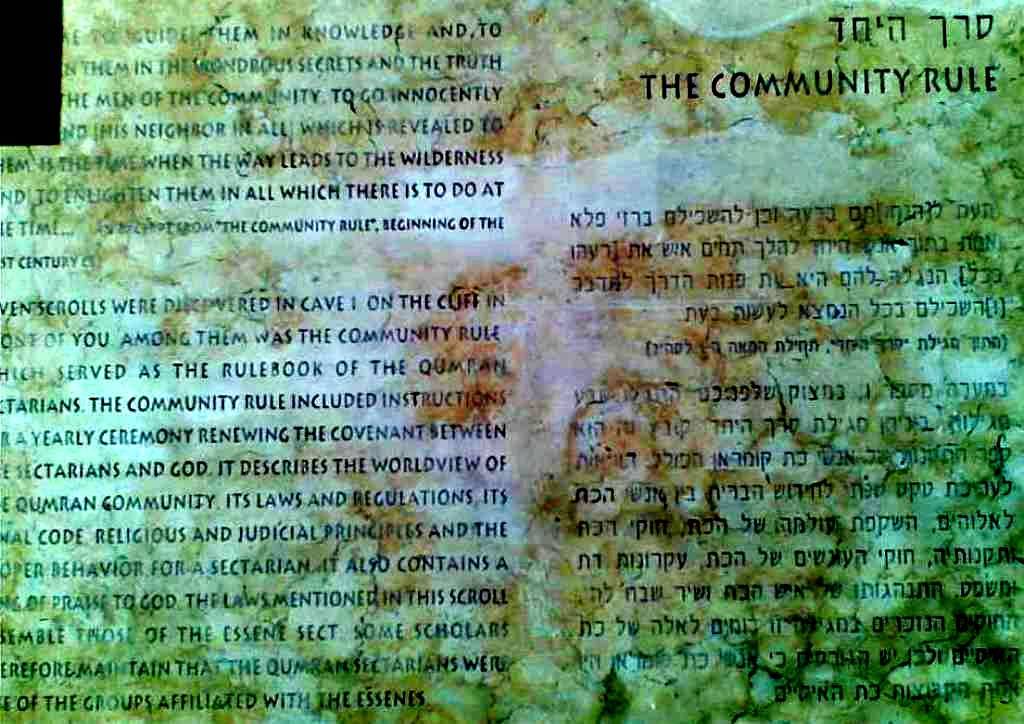 סרך היחד
THE COMMUNITY RULE
TO GUIDE THEM IN KNOWLEDGE AND TO
THEM IN THE WONDROUS SECRETS AND THE TRUTH
THE MEN OF THE COMMUNITY, TO GO INNOCENTLY
HIS NEIGHBOR IN ALL WHICH IS REVEALED TO
IS THE TIME WHEN THE WAY LEADS TO THE WILDERNESS
TO ENLIGHTEN THEM IN ALL WHICH THERE IS TO DO AT
TIME... AN EXCERPT FROM "THE COMMUNITY RULE", BEGINNING OF THE
ST CENTURY
VEN SCROLLS WERE DISCOVERED IN CAVE 1 ON THE CLIFF IN
OF YOU. AMONG THEM WAS THE COMMUNITY RULE
HICH SERVED AS THE RULEBOOK OF THE QUMRAN
CTARIANS. THE COMMUNITY RULE INCLUDED INSTRUCTIONS
R A YEARLY CEREMONY RENEWING THE COVENANT BETWEEN
E SECTARIANS AND GOD. IT DESCRIBES THE WORLDVIEW OF
E QUMRAN COMMUNITY, ITS LAWS AND REGULATIONS, ITS
NAL CODE, RELIGIOUS AND JUDICIAL PRINCIPLES AND THE
OPER BEHAVIOR FOR A SECTARIAN. IT ALSO CONTAINS A
NG OF PRAISE TO GOD. THE LAWS MENTIONED IN THIS SCROLL
SEMBLE THOSE OF THE ESSENE SECT. SOME SCHOLARS
EREFORE MAINTAIN THAT THE QUMRAN SECTARIANS WERE
E OF THE GROUPS AFFILIATED WITH THE ESSENES.
בדעה וכן להשכילם ברזי פלא
ואמת בתוך אנשי היחד להלך תמים איש את [רעהו
בכל], הנגלה להם היא עת פנות הדרך למדבר
[ו]השכילם בכל הנמצא לעשות בעת
(מתוך מגילת "סרך היחד", תחילת המאה הא' לסה"נ)
במערה מספר 1, במצוק שלפניכם התגלו שבע
מגילות, ביניהן מגילת סרך היחד. קובץ זה הוא
ספר התקנות של אנשי כת קומראן הכולל הוראות
לעריכת טקס שנתי לחידוש הברית בין אנשי הכת
לאלוהים, השקפת עולמה של הכת, חוקי הכת
ותקנותיה, חוקי העונשים של הכת, עקרונות דת
ומשפט, התנהגותו של איש הכת ושיר שבח לה'.
החוקים הנזכרים במגילה זו דומים לאלה של כת
האיסיים ולכן יש הגורסים כי אנשי כת קומראן היו
אחת מקבוצות כת האיסיים